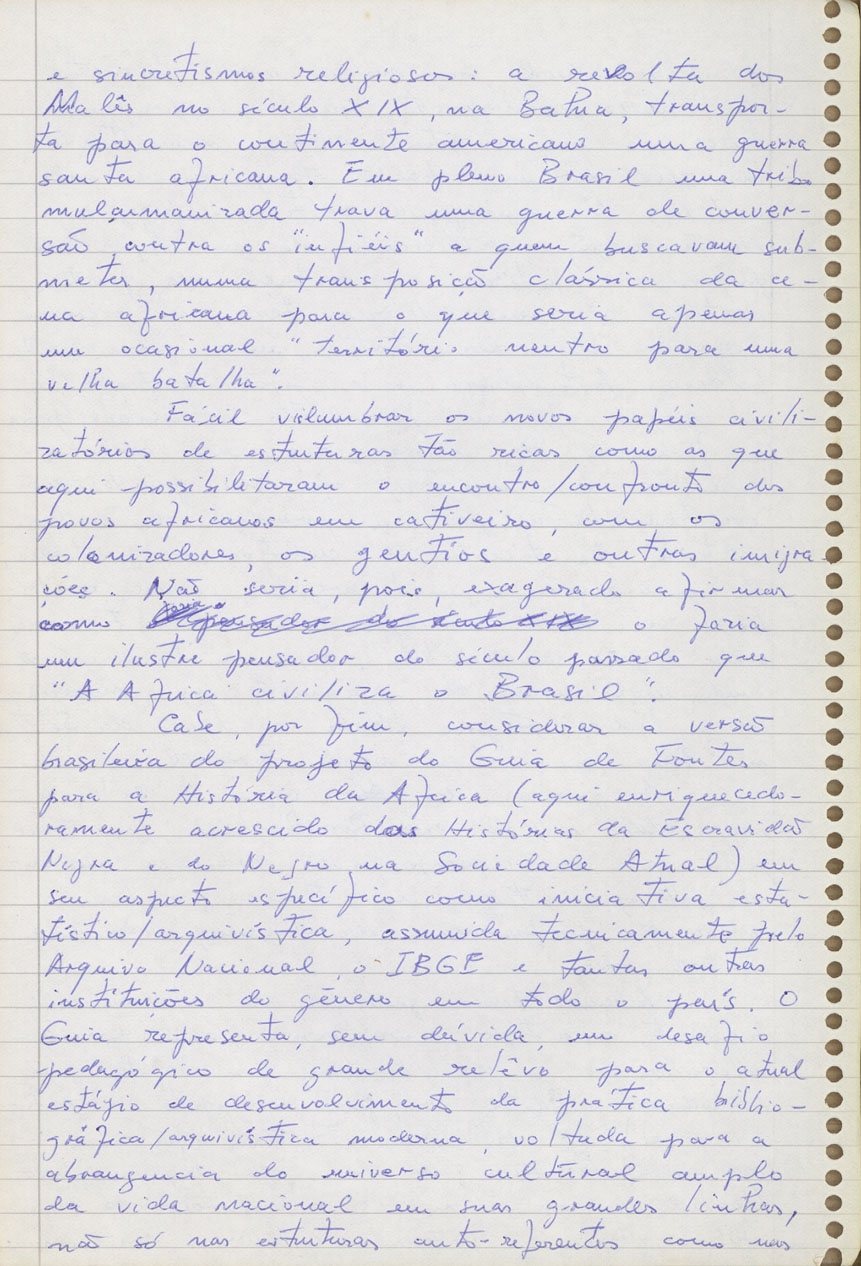 e sincretismos religiosos: a revolta dos
Malês no século XIX, na Bahia, transpor-
ta para o continente americano uma guerra
santa africana. Em pleno Brasil uma tribo
mulçumanizada trava uma guerra de conver-
são contra os "infiéis" a quem buscavam sub-
meter, numa transposição clássica da ce-
na africana para o que seria apenas
um ocasional "território neutro para uma
velha batalha".
Fácil vislumbrar os novos papéis civili-
zatórios de estruturas tão ricas como as que
aqui possibilitaram o encontro/confronto dos
povos africanos em cativeiro, com os
colonizadores, os gentios e outras imigra-
ções. Não seria, pois, exagerado afirmar
como o faria
um ilustre pensador do século passado que
"A Africa civiliza o Brasil".
Cabe, por fim, considerar a versão
brasileira do projeto do Guia de Fontes
para a História da Africa (aqui enriquecedo-
ramente acrescido das Histórias da Escravidão
Negra e do Negro na Sociedade Atual) em
seu aspecto específico como iniciativa esta-
tístico/arquivística, assumida tecnicamente pelo
Arquivo Nacional, o IBGE e tantas outras
instituições do gênero em todo o país. O
Guia representa, sem dúvida, um desafio
pedagógico de grande relêvo para o atual
estágio de desenvolvimento da prática biblio-
gráfica/arquivística moderna, voltada para a
abrangencia do universo cultural amplo
da vida nacional em suas grandes linhas,
não só nas estruturas auto-referentes como nas